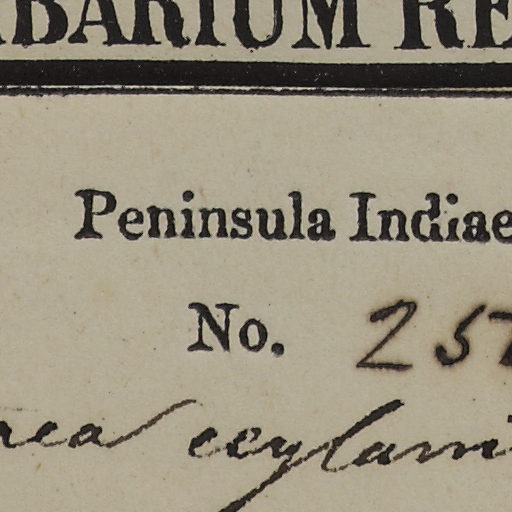 BARIUM RE
Peninsula Indiae
No. 257
ceylani